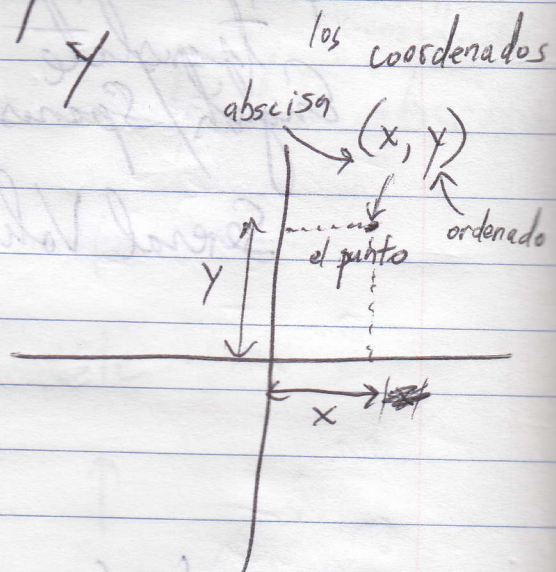 y
los coordenados
abscisa
(x, y)
ordenado
el punto
y
x